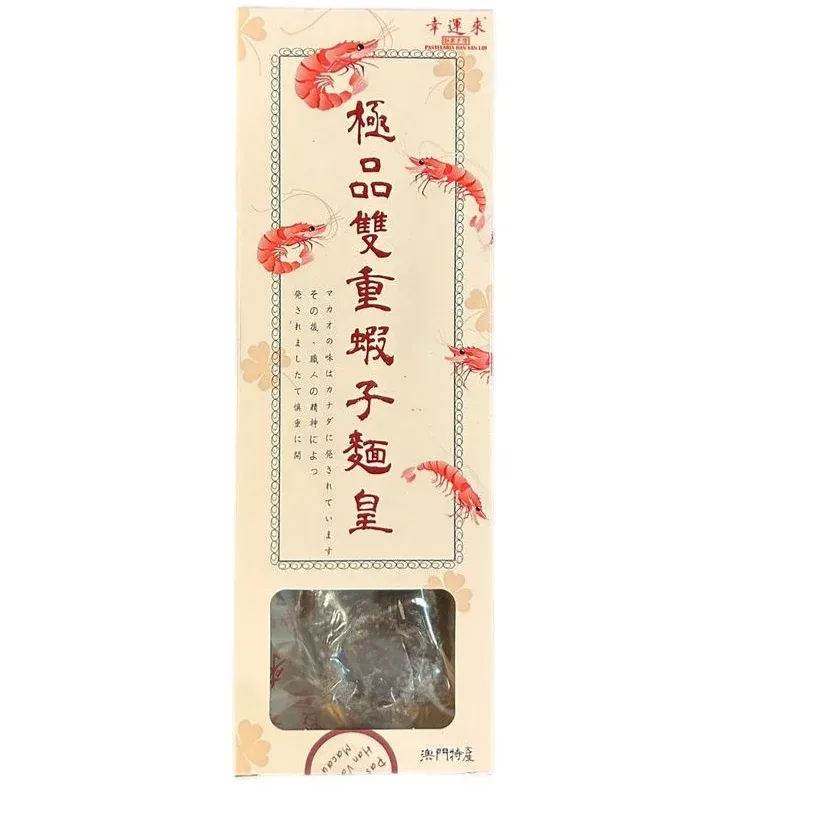 幸運來
PASTELARIA HAN VAN LOI
極品雙重蝦子麵皇
マカオの味はカナダに発されています
その後、職人の精神によつ
発されましたて慎重に開
Pas
Han Va
Macau
澳門特產